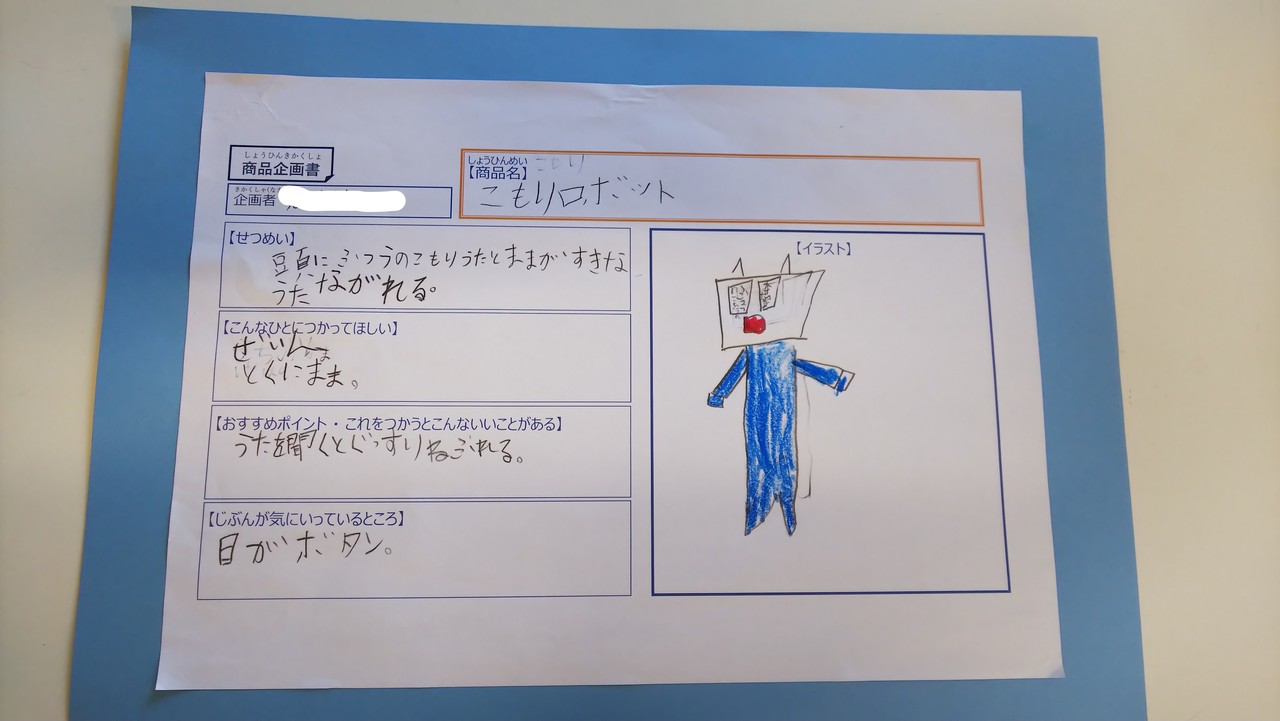 しょうひんきかくしょ
商品企画書
きかくしゃ(な
企画者
しょうひんめい こもり
【商品名】
こもりロボット
【せつめい】
頭にふつうのこもりうたとままがすきな
うたながれる。
【こんなひとにつかってほしい】
ぜいん
とくにまま。
【おすすめポイント・これをつかうとこんないいことがある】
うたを聞くとぐっすりねぶれる。
【じぶんが気にいっているところ】
目がボタン。
【イラスト】